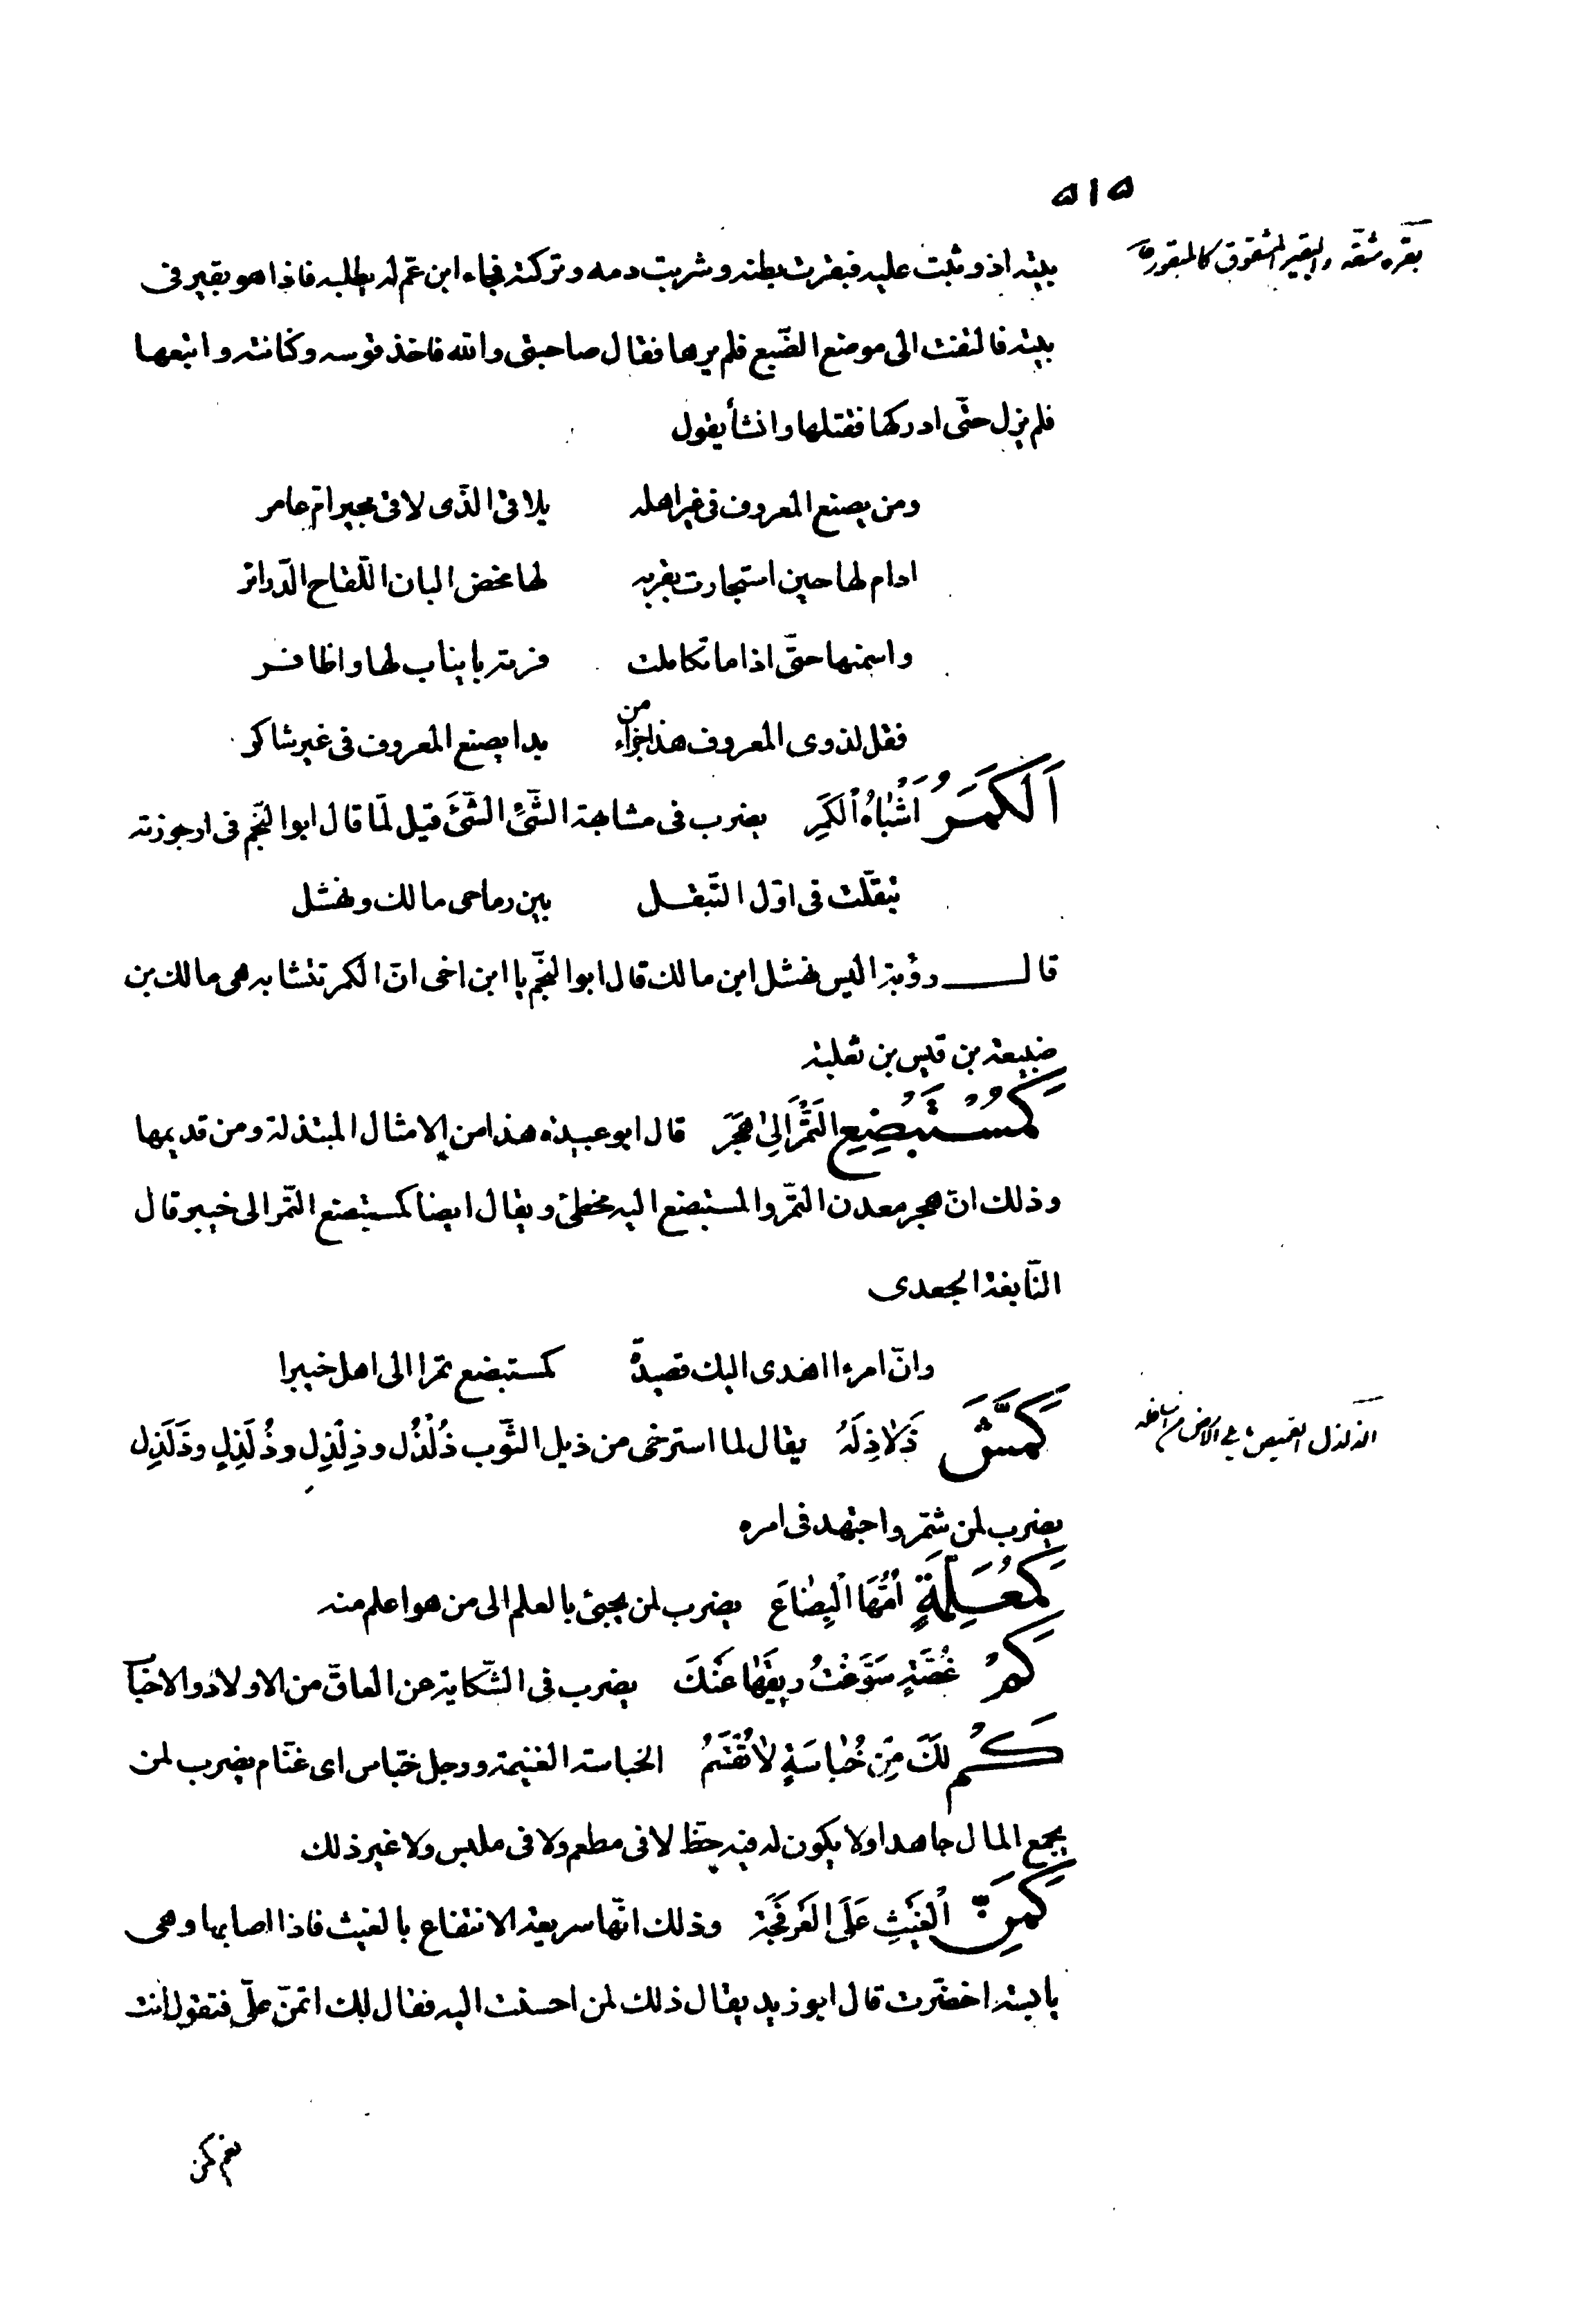 ٥١٥
بقره شقه والبقير المشقوق كالمبقور ق
بيته اذ وثبت عليه فبقرت بطنه وشربت دمه وتركته فجاء ابن عمّ له يطلبه فاذا هو بقير فى
بيته فالتفت الى موضع الضّبع فلم يرها فقال صاحبتى والله فاخذ قوسه وكنانته واتبعها
فلم يزل حتّى ادركها فقتلها وانشأ يقول
ومن يصنع المعروف فى غير اهله يلاقى الّذى لاقى مجير امّ عامر
ادام لها حين استجارت بقربه لها محض البان اللّقاح الدّرائر
واسمنها حتّى اذا ما تكاملت فرته بانياب لها واظافر
فقل لذوى المعروف هذا جزاء من بدا يصنع المعروف فى غير شاكر
اَلْكَمَرُ اَشْبَاهُ الْكَمَرِ يضرب فى مشابهة الشّئِ الشّئَ قيل لمّا قال ابو النّجم فى ارجوزته
تبقّلت فى اوّل التّبقل بين رماحى مالك ونهشل
قال رؤبة اليس نهشل ابن مالك قال ابو النّجم يا ابن اخى انّ الكمر تتشابه هى مالك بن
ضبيعة بن قيس بن ثعلبة
كَمُسْتَبْضِعِ التَّمْرِ اِلىٰ هَجَرَ قال ابو عبيدة هذا من الامثال المبتذلة ومن قديمها
وذلك انّ هجر معدن التّمر والمستبضع اليه مخطئ ويقال ايضا كمستبضع التّمر الى خيبر قال
النّابغة الجعدى
وانّ امرءا اهدى اليك قصيدة كمستبضع تمرا الى اهل خيبرا
كَمَّشَ ذَلاٰذِلَهُ يقال لما استرخى من ذيل الثّوب ذُلْذُل وذِلْذِل وذُلَذِلٍ وذَلَذِل
الذلذل القميص ما يلى الارض من اسافله
يضرب لمن شمّر واجتهد فى امره
كَمُعَلِّمَةٍ اُمَّهَا الْبِضٰاعَ يضرب لمن يجيئ بالعلم الى من هو اعلم منه
كَمْ غُصَّةٍ سَوَّغْتُ رِيقَهٰا عَنْكَ يضرب فى الشّكاية عن العاقّ من الاولاد والاحبّاء
كَمْ لَكَ مِنْ خُبٰاسَةٍ لاٰتُقْسَمُ الخباسة الغنيمة ورجل خبّاس اى غنّام يضرب لمن
يجمع المال جاهدا ولا يكون له فيه حظّ لا فى مطعم ولا فى ملبس ولا غير ذلك
كَمَنِّ الْغَيْثِ عَلَى الْعَرْفَجَةِ وذلك انّها سريعة الانتفاع بالغيث فاذا اصابها وهى
يابسة اخضرّت قال ابو زيد يقال ذلك لمن احسنت اليه فقال لك اتمنّ علىّ فتقول انت
نعم كمن